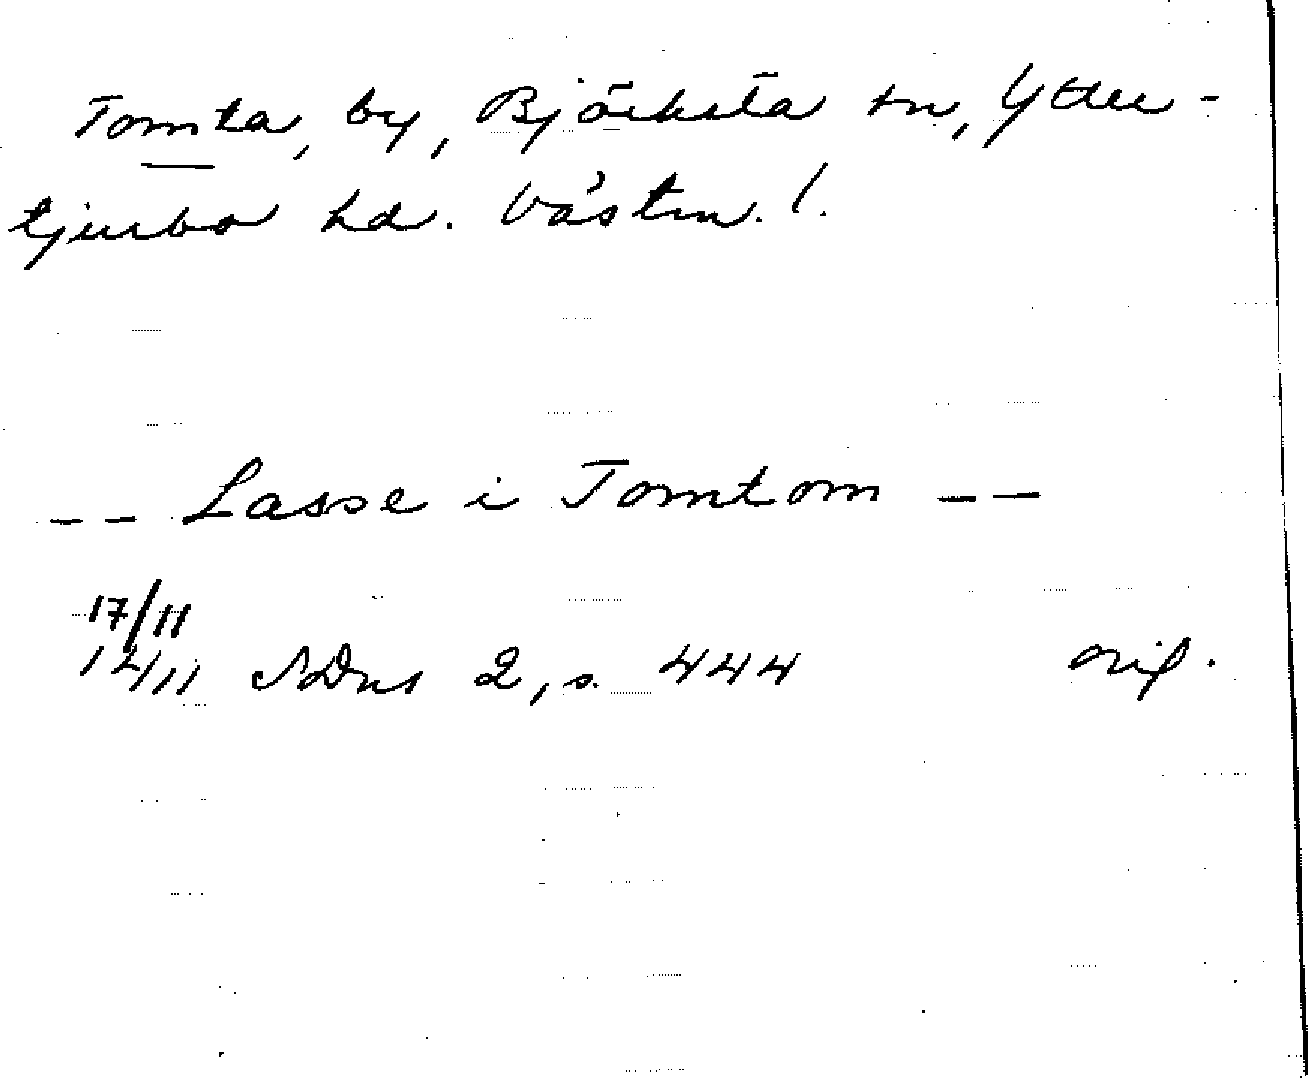 Tomta, by, Björksta sn, Ytter-
tjurbo hd. Västm. l.
-- Lasse i Tomtom --
17/11
1411 SDns 2, s. 444 orig.